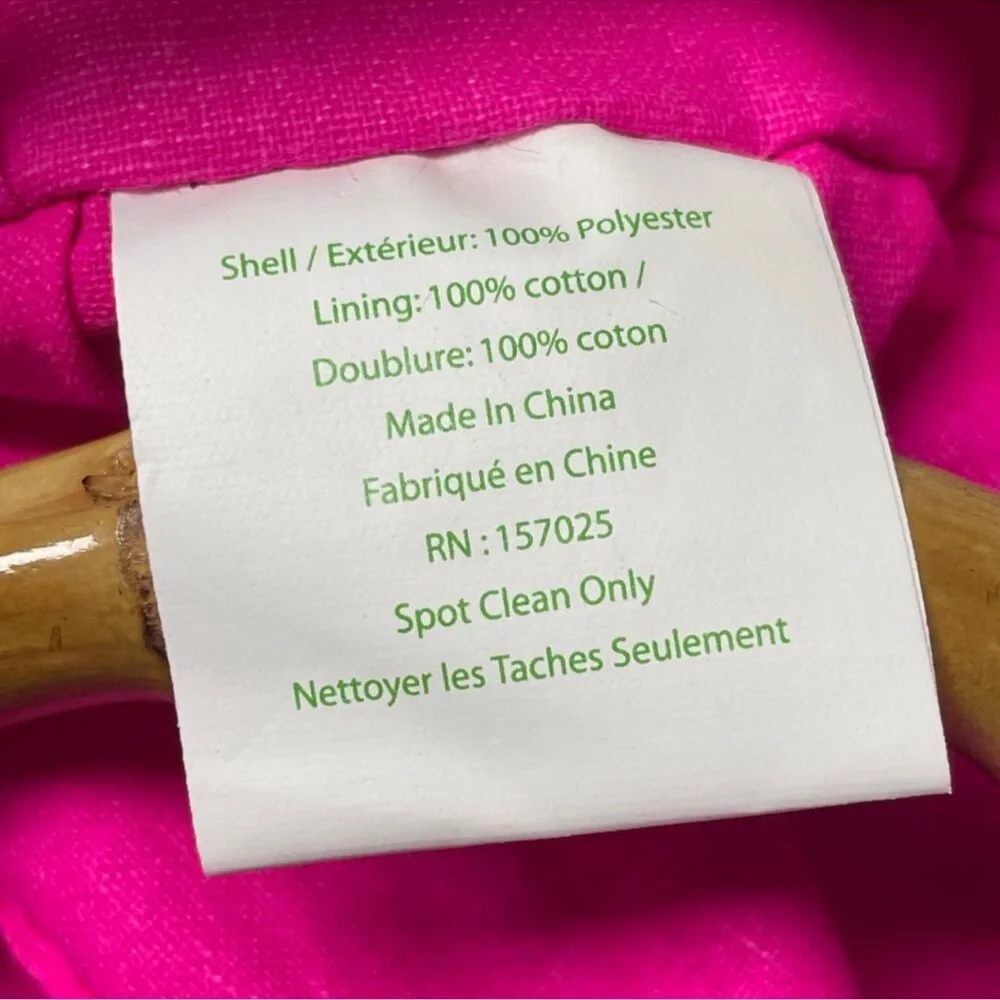 Shell / Extérieur: 100% Polyester
Lining: 100% cotton /
Doublure: 100% coton
Made In China
Fabriqué en Chine
RN : 157025
Spot Clean Only
Nettoyer les Taches Seulement